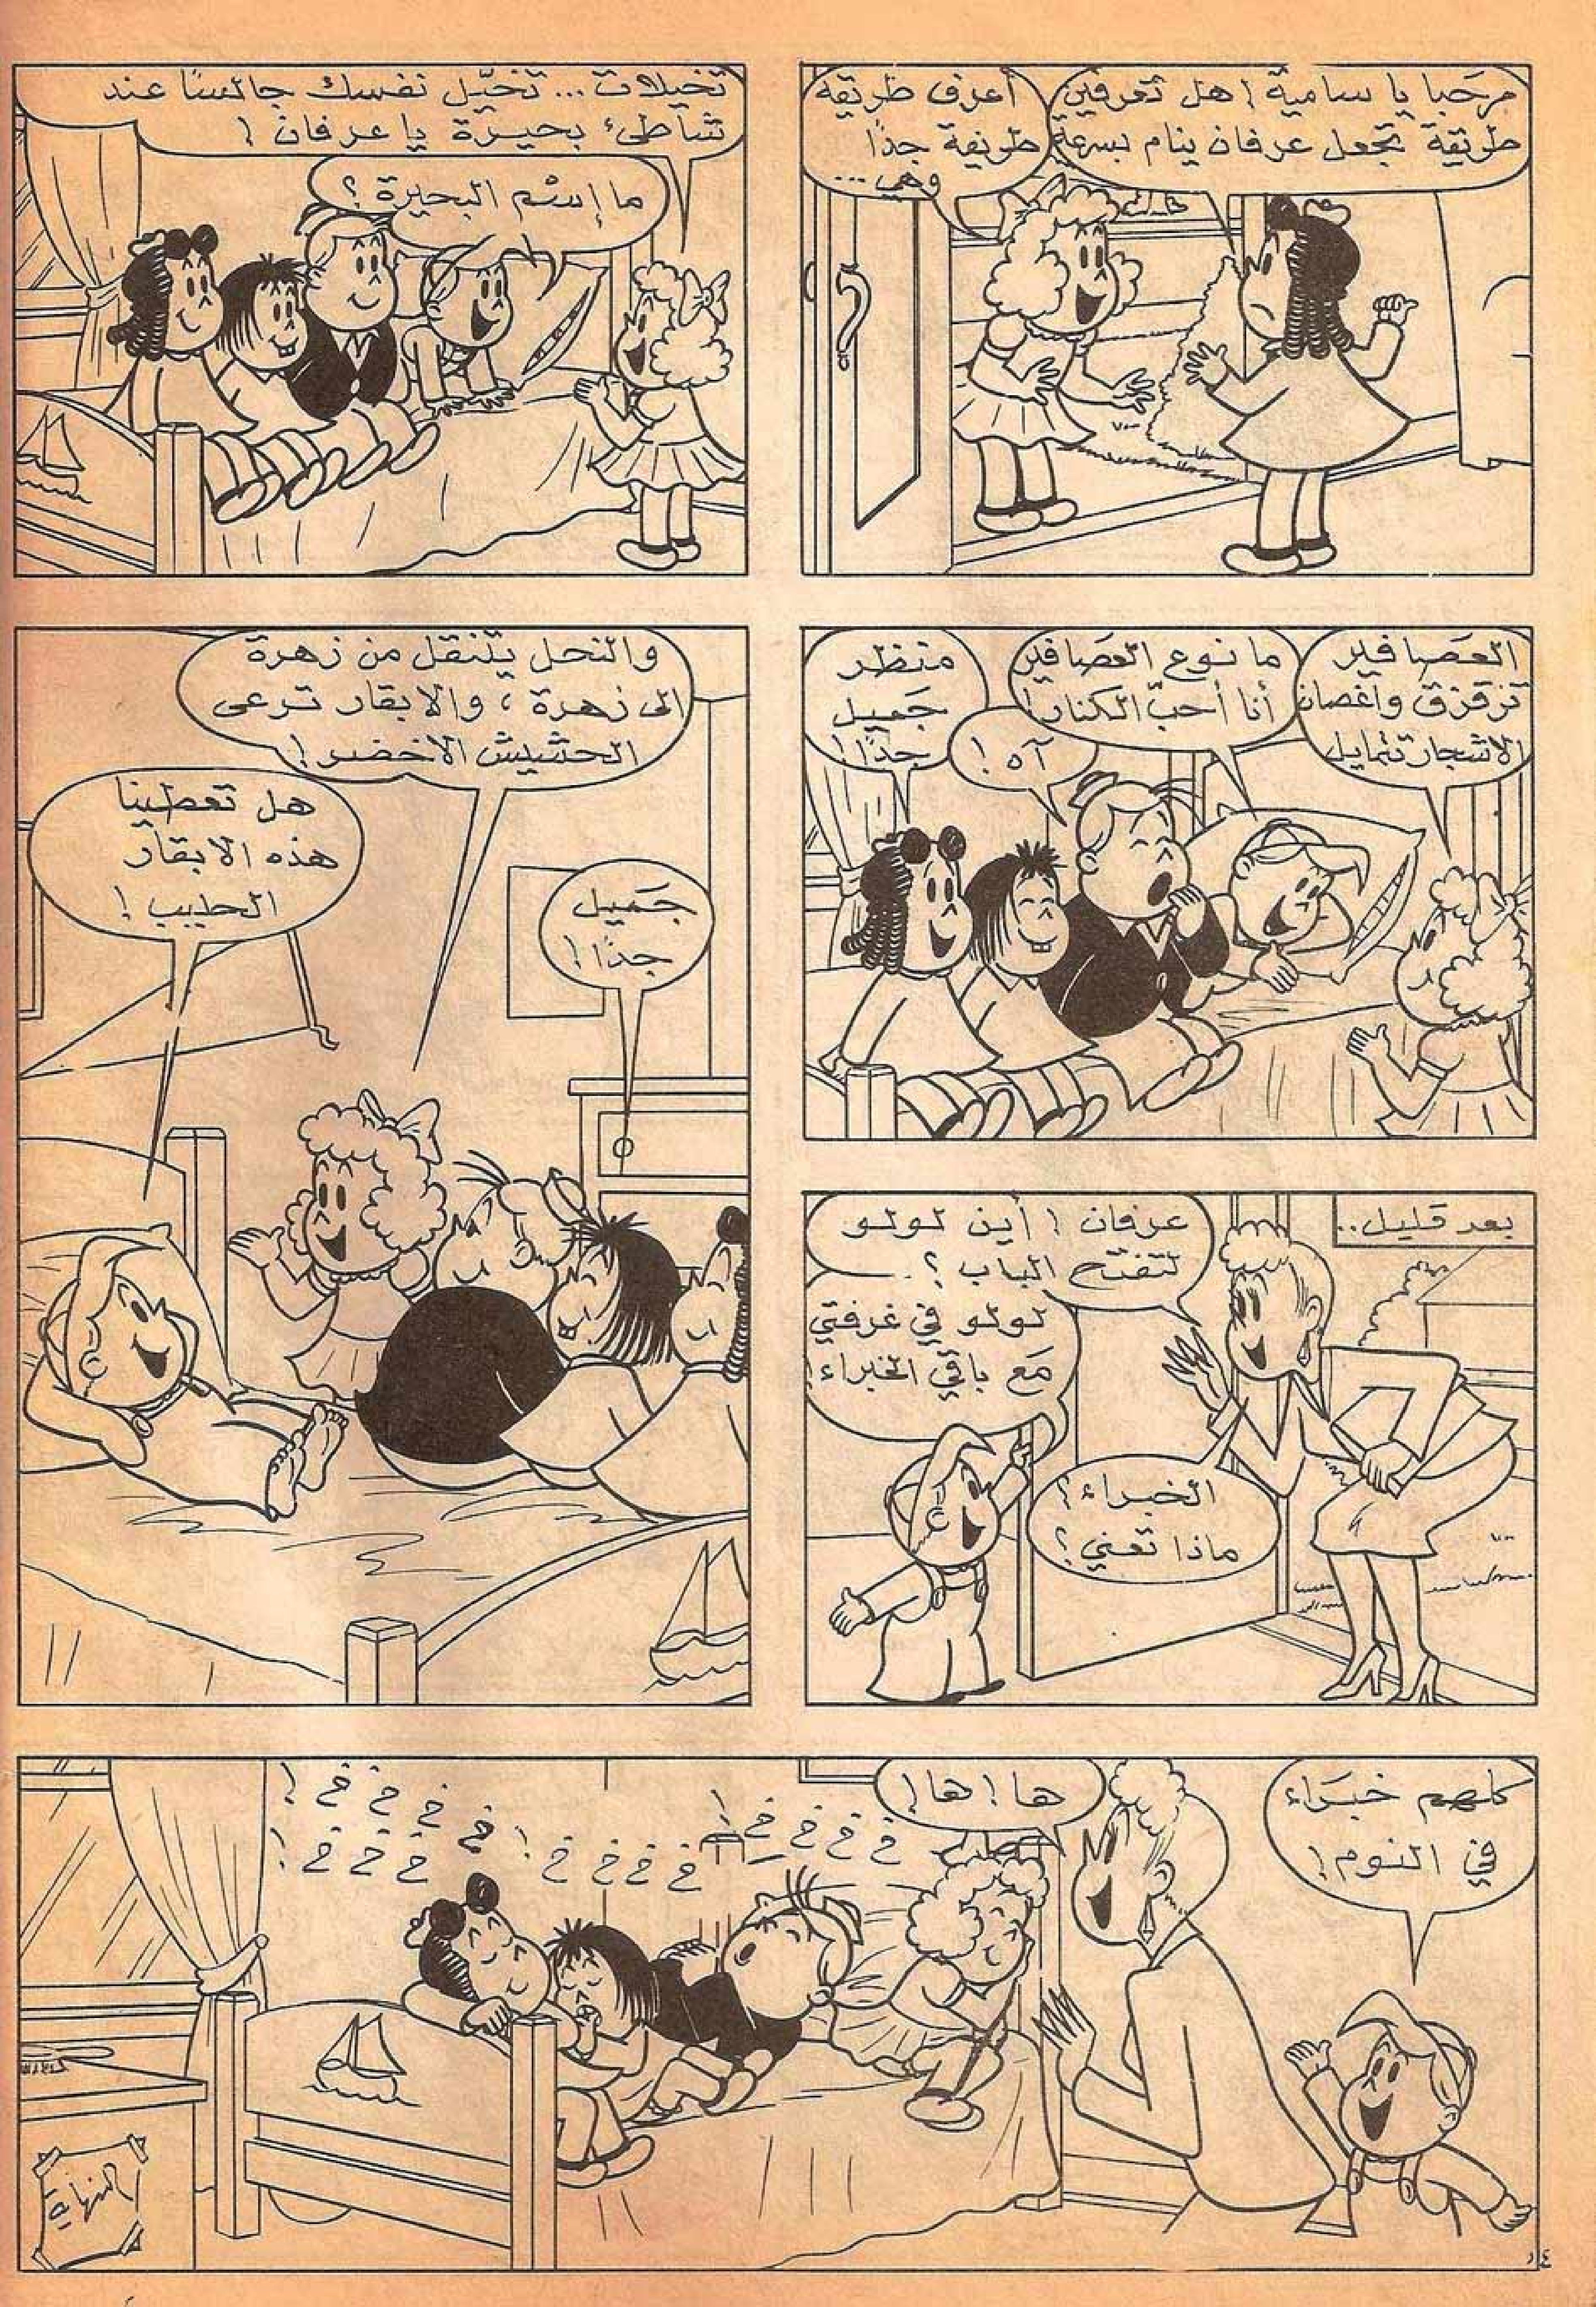 مرحبا يا سامية! هل تعرفين
طريقة تجعل عرفان ينام بسرعة
أعرف طريقة
طريفة جدًا
وهي...
تخيلات... تخيّل نفسك جالسًا عند
شاطئ بحيرة يا عرفان!
ما إسم البحيرة؟
العصافير
تزقزق وأغصان
الاشجار تتمايل
ما نوع العصافير
أنا أحبّ الكنار!
آه!
منظر
جميل
جدًا!
والنحل يتنقل من زهرة
الى زهرة، والابقار ترعى
الحشيش الاخضر!
جميل
جدًا!
هل تعطينا
هذه الابقار
الحليب!
بعد قليل..
عرفان! أين لولو
لتفتح الباب؟
لولو في غرفتي
مع باقي الخبراء!
الخبراء؟
ماذا تعني؟
كلهم خبراء
في النوم!
ها! ها!
خ خ خ خ!
خ خ خ خ!
خ خ خ خ!
خ خ خ!
النهاية